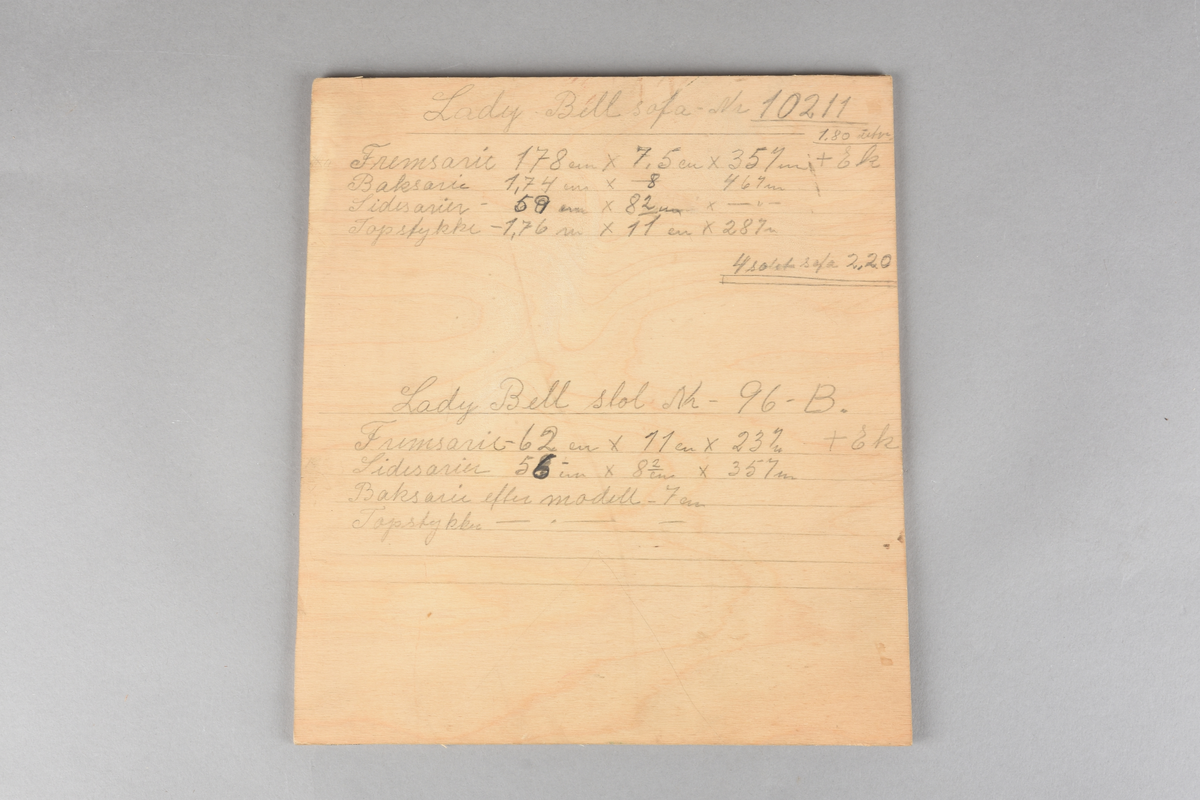 Lady Bell sofa - Nr 10211
1.80
Fremsarie 178 cm x 7,5 cm x 35 7/m + Ek
Baksarie 1,74 cm x 8 46 7/m
Sidesarier - 59 cm x 82 cm x — „ —
Topstykke - 1,76 m x 11 cm x 28 7/m
4 setet sofa 2.20
Lady Bell stol Nr - 96 - B.
Fremsarie - 62 cm x 11 cm x 23 7/m + Ek
Sidesarier 56 cm x 8 2/cm x 35 7/m
Baksarie efter modell - 7 cm
Topstykke — „ — —